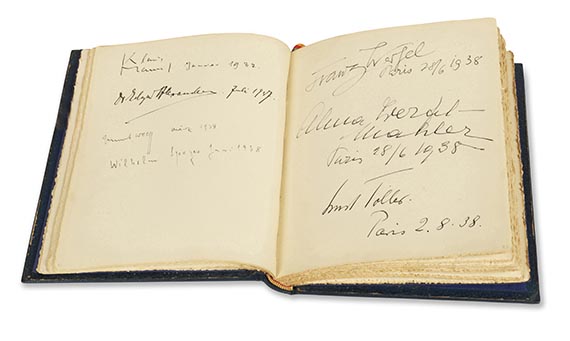 Klaus
Mann Januar 1938
Dr Edgar Alexander Juli 1939.
März 1938
Wilhelm Speyer Juni 1938
Franz Werfel
Paris 28/6 1938
Alma Werfel-
Mahler
Paris 28/6 1938
Ernst Toller.
Paris 2.8.38.